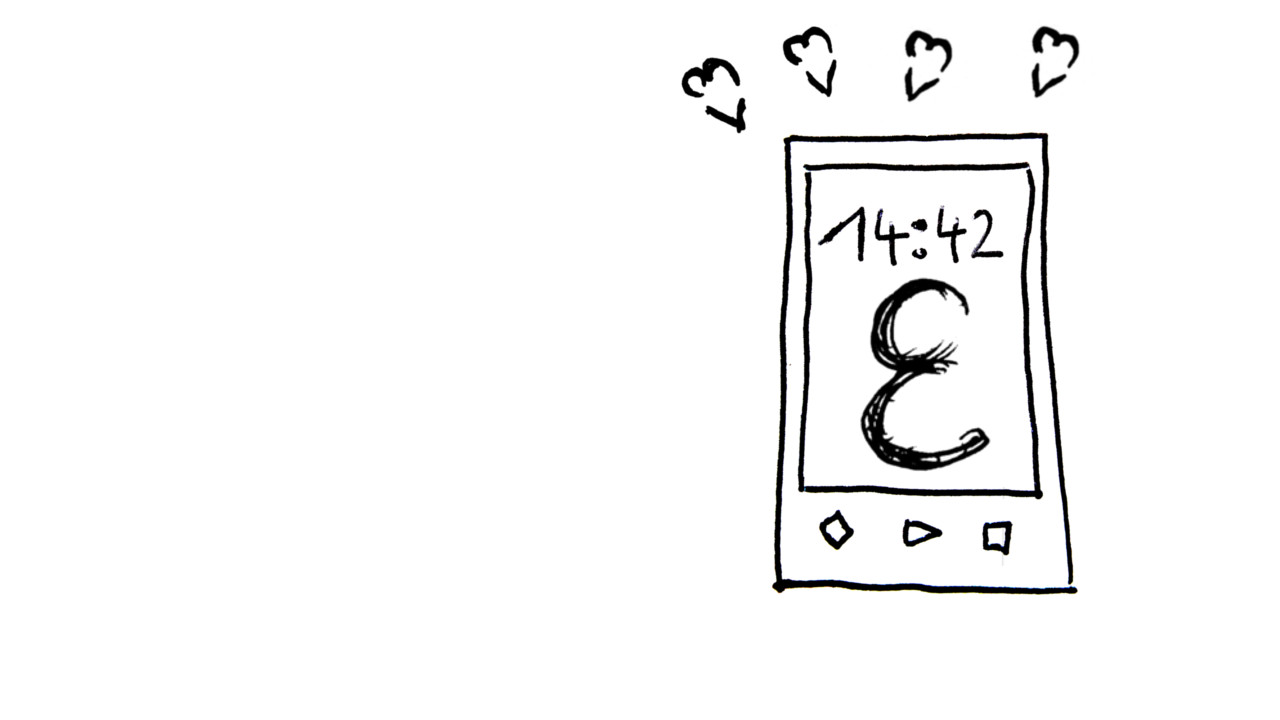 14:42
ε